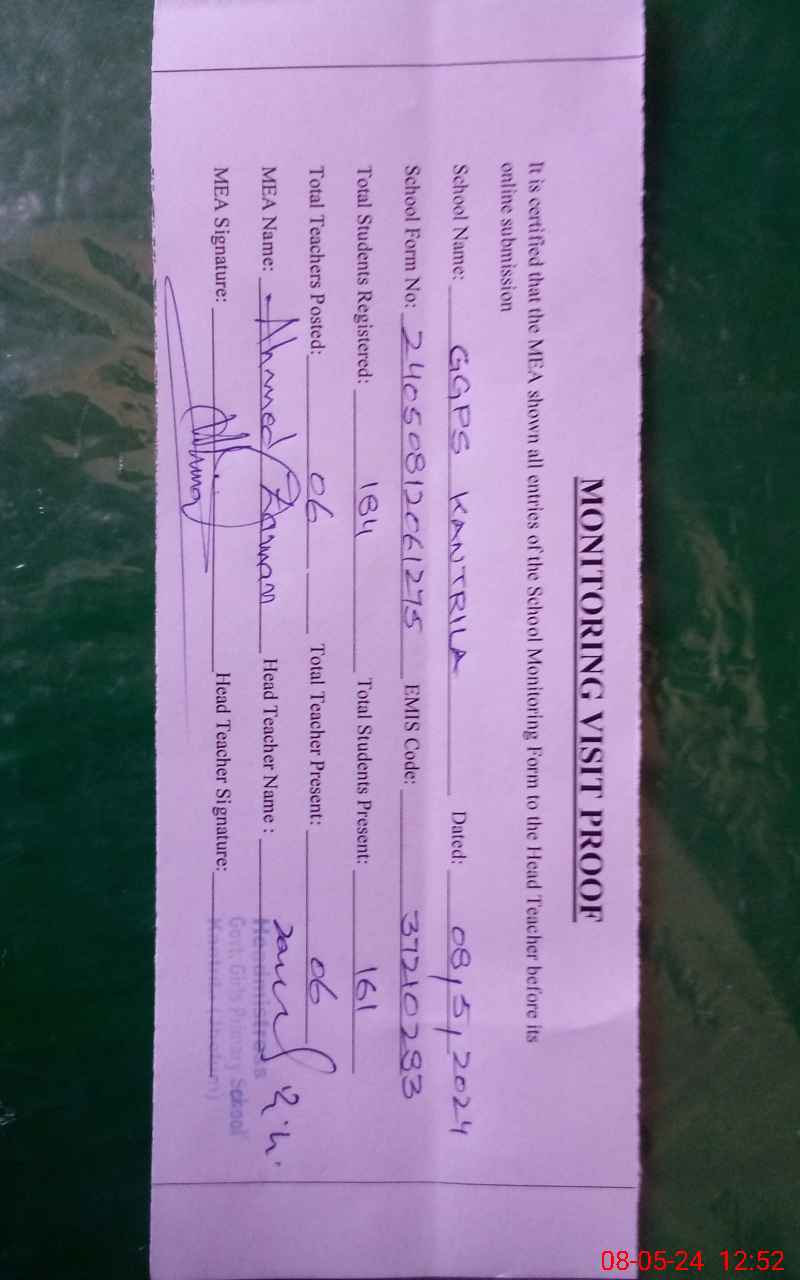 MONITORING VISIT PROOF
It is certified that the MEA shown all entries of the School Monitoring Form to the Head Teacher before its
online submission
School Name: GGPS KANTRILA Dated: 08,5,2024
School Form No: 24050812061275 EMIS Code: 37210293
Total Students Registered: 184 Total Students Present: 161
Total Teachers Posted: 06 Total Teacher Present: 06
MEA Name: Ahmed Zaman Head Teacher Name :
MEA Signature: Head Teacher Signature:
Headmistress
Govt. Girls Primary School
08-05-24 12:52